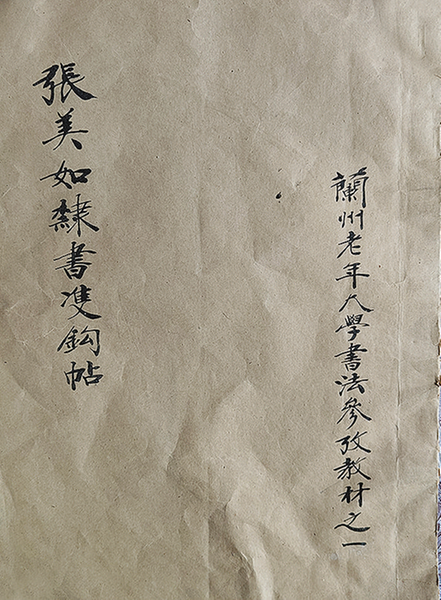 蘭州老年大學書法參攷教材之一
張美如隸書隻鈎帖